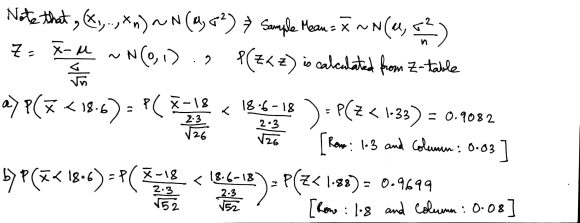 Note that, (x₁,..,xₙ) ~ N(μ,σ²) ⇒ Sample Mean = x̄ ~ N(μ, σ²/n)
Z = (x̄-μ)/(σ/√n) ~ N(0,1) . , P(Z<z) is calculated from Z-table
a) P(x̄ < 18.6) = P( (x̄-18)/(2.3/√26) < (18.6-18)/(2.3/√26) ) = P(Z < 1.33) = 0.9082
[Row: 1.3 and Column: 0.03]
b) P(x̄< 18.6) = P( (x̄-18)/(2.3/√52) < (18.6-18)/(2.3/√52) ) = P(Z< 1.88) = 0.9699
[Row: 1.8 and Column: 0.08]